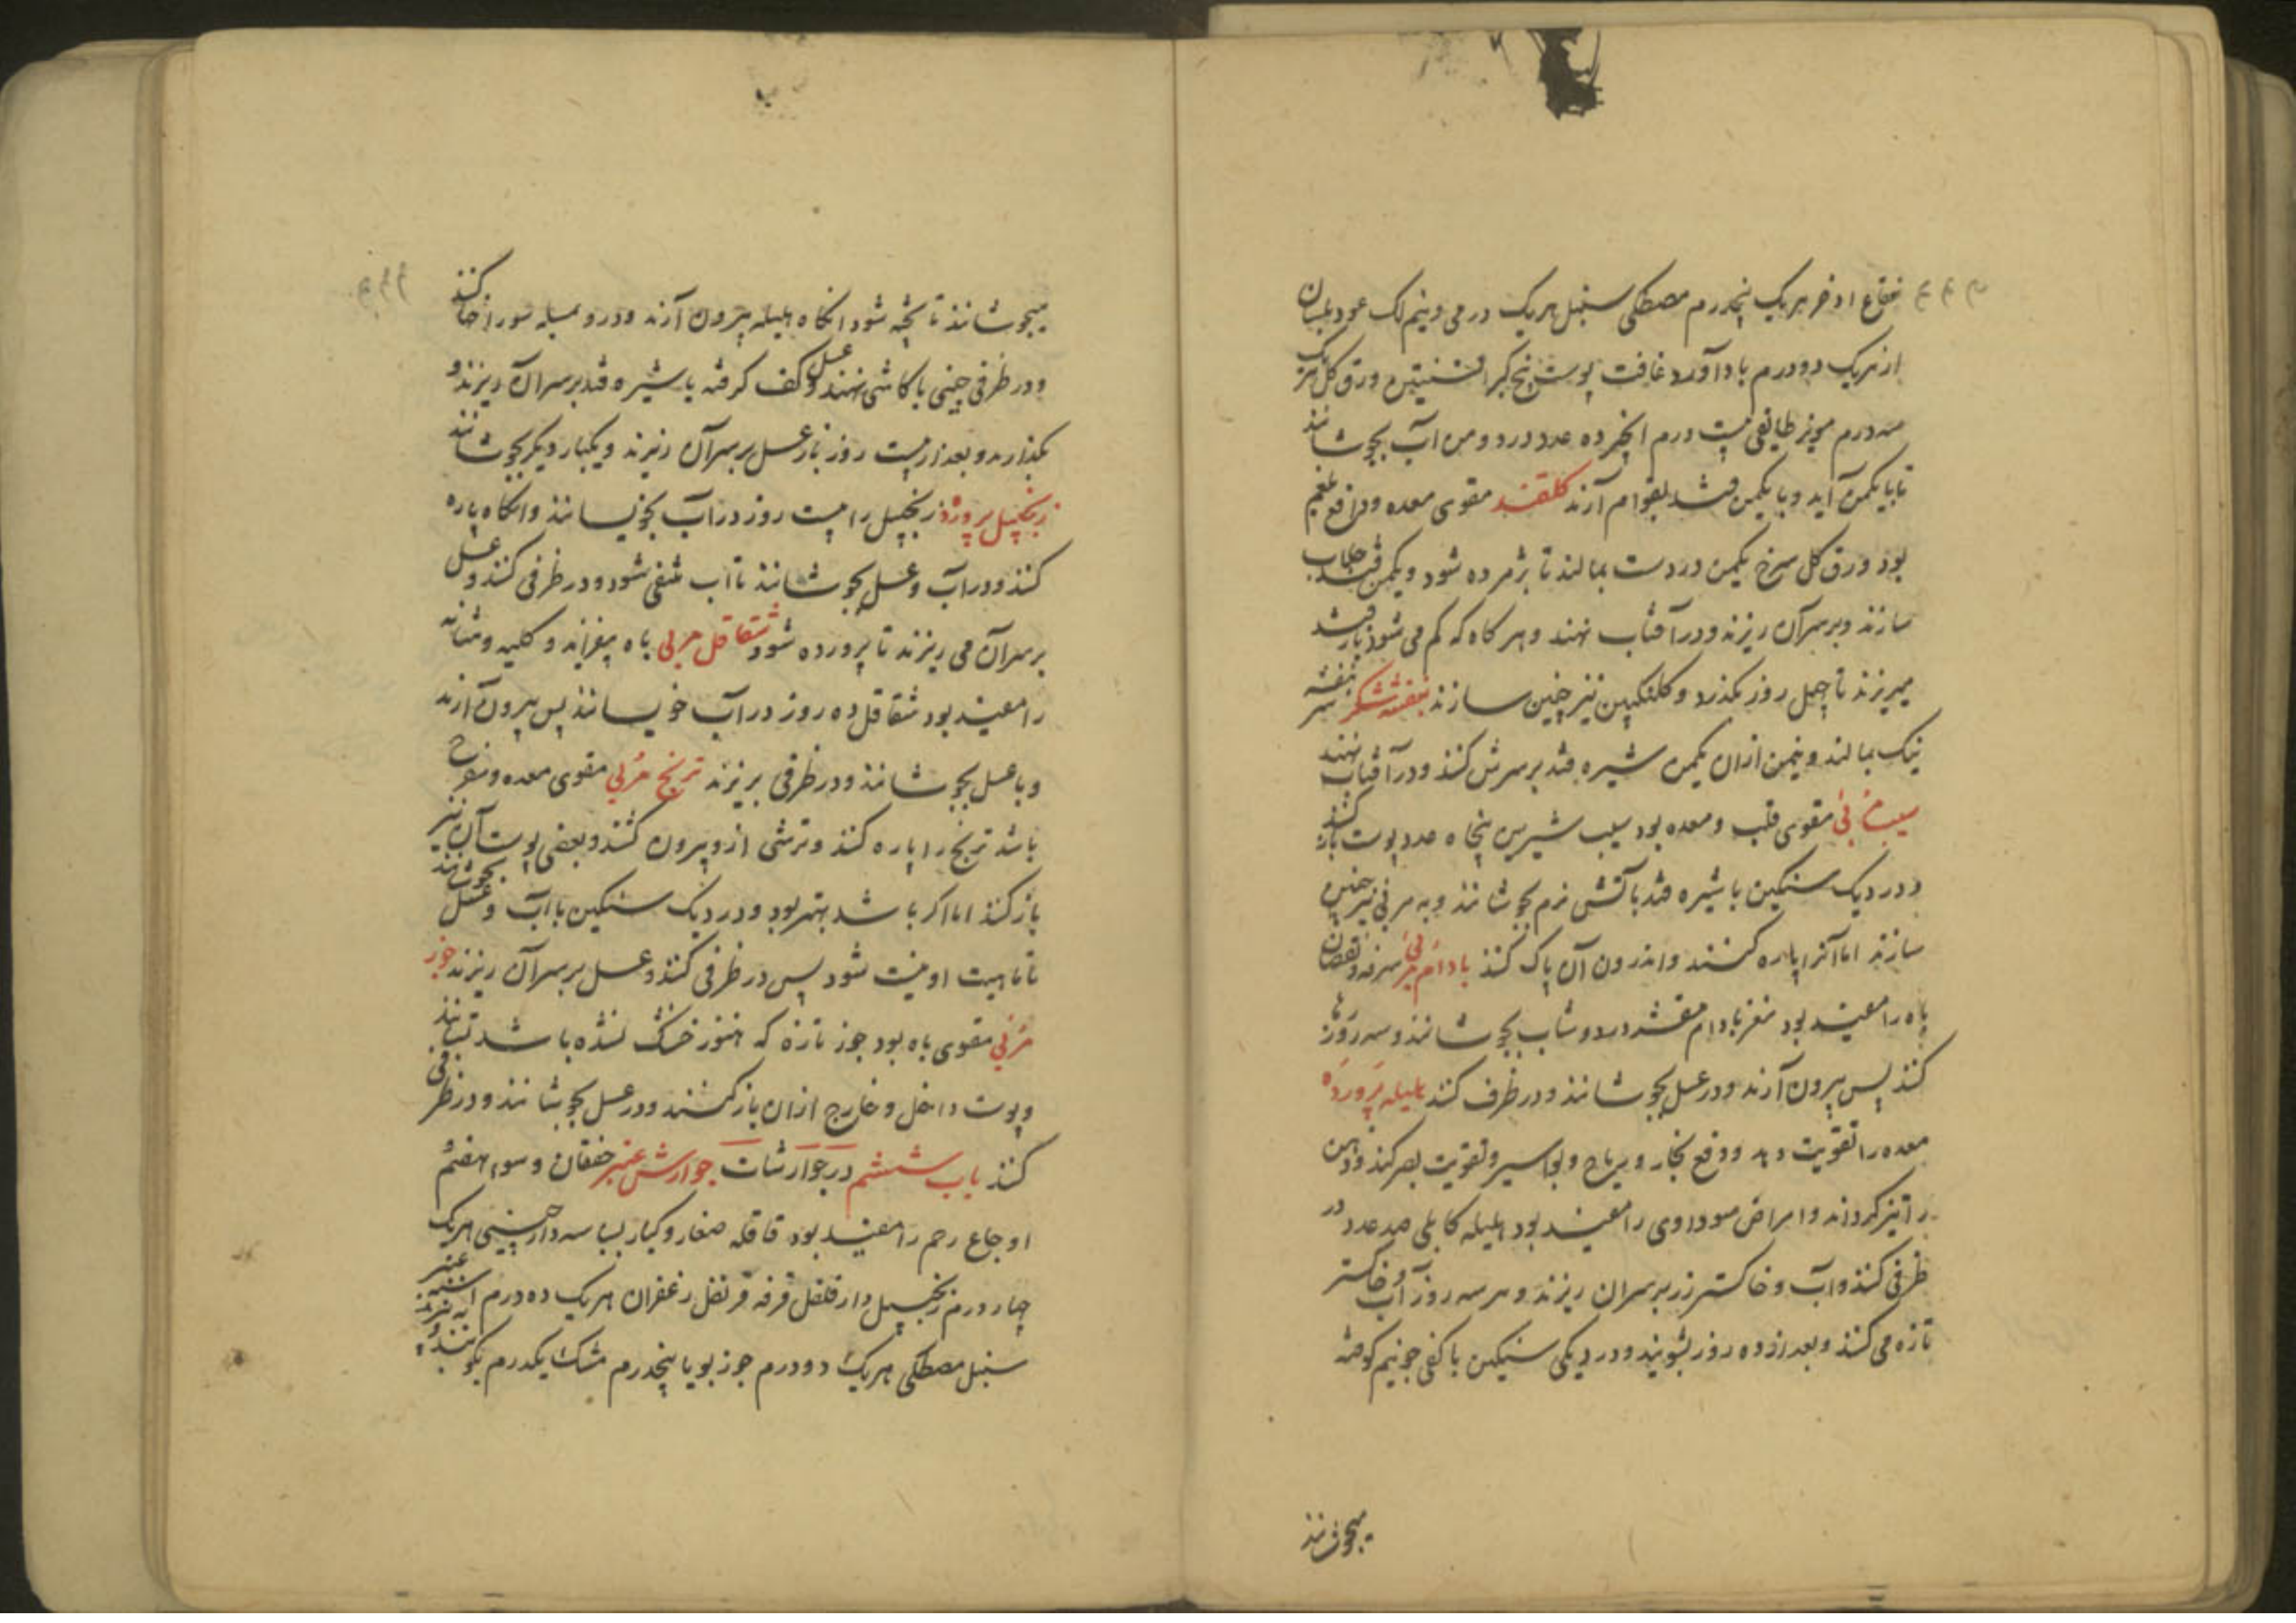 فقاع اذخر هریک پنجدرم مصطکی سنبل هریک درمی و نیم لک عود بلسان
از هریک دو درم باداآورد غافت پوست بیخ کبر افسنتین ورق کل هریک
سه درم مویز طایفی بیست درم انجیر ده عدد در دو من آب بجوشانند
تا بیکمن آید و با یکمن قند بقوام آرند کلقند مقوی معده و دافع بلغم
بود ورق کل سرخ یکمن در دست بمالند تا پژمرده شود و یکمن قند جلاب
سازند و بر سر آن ریزند و در آفتاب نهند و هرکاه که کم می شود باز قند
میریزند تا چهل روز بکذرد و کلنکبین نیز چنین سازند بنفشه شکر بنفشه تر
نیک بمالند و نیمن ازان یکمن شیره قند بر سرش کنند و در آفتاب نهند
سیب مربی مقوی قلب و معده بود سیب شیرین پنجاه عدد پوست باز کنند
و در دیک سنکین با شیره قند بآتش نرم بجوشانند و به مربی نیز چنین
سازند اما آنرا پاره کنند و اندرون آن پاک کنند بادام مربی سرفه و نقصان
باه را مفید بود مغز بادام مقشر در دوشاب بجوشانند و سه روز رها
کنند پس بیرون آرند و در عسل بجوشانند و در ظرف کنند هلیله پرورده
معده را تقویت دهد و دفع بخار و ریاح و بواسیر و تقویت بصر کند و ذهن
را تیز کرداند و امراض سوداوی را مفید بود هلیله کابلی صد عدد در
ظرفی کنند و آب و خاکستر رز بر سر آن ریزند و هر سه روز آب و خاکستر
تازه می کنند و بعد از ده روز بشویند و در دیکی سنکین با کفی جو نیم کوفته
میجوشانند
میجوشانند تا پخته شود انکاه هلیله بیرون آرند و در و میله سوراخ کنند
و در ظرفی چینی یا کاشی نهند و عسل کف کرفته یا شیره قند بر سر آن ریزند و
بکذارند و بعد از بیست روز باز عسل بر سر آن ریزند و یکبار دیکر بجوشانند
زنجبیل پرورده زنجبیل را بیست روز در آب بخویسانند و انکاه پاره
کنند و در آب و عسل بجوشانند تا آب منفی شود و در ظرفی کنند و عسل
بر سر آن می ریزند تا پرورده شود شقاقل مربی باه بیفزاید و کلیه و مثانه
را مفید بود شقاقل ده روز در آب خویسانند پس بیرون آرند
و با عسل بجوشانند و در ظرفی بریزند ترنج مربی مقوی معده و مفرح
باشد ترنج را پاره کنند و ترشی ازو بیرون کنند و بعضی پوست آن نیز
باز کنند اما اکر باشد بهتر بود و در دیک سنکین با آب و عسل بجوشانند
تا ماهیت او نیست شود پس در ظرفی کنند و عسل بر سر آن ریزند جوز
مربی مقوی باه بود جوز تازه که هنوز خشک نشده باشد بستانند
و پوست داخل و خارج ازان باز کنند و در عسل بجوشانند و در ظرفی
کنند باب ششم در جوارشات جوارش عنبر خفقان و سوء هضم
اوجاع رحم را مفید بود قاقله صغار و کبار بسباسه دارچینی هریک
چهار درم زنجبیل دارفلفل قرفه قرنفل زعفران هریک ده درم اشنه عنبر
سنبل مصطکی هریک دو درم جوزبویا پنجدرم مشک یکدرم بکوبند و